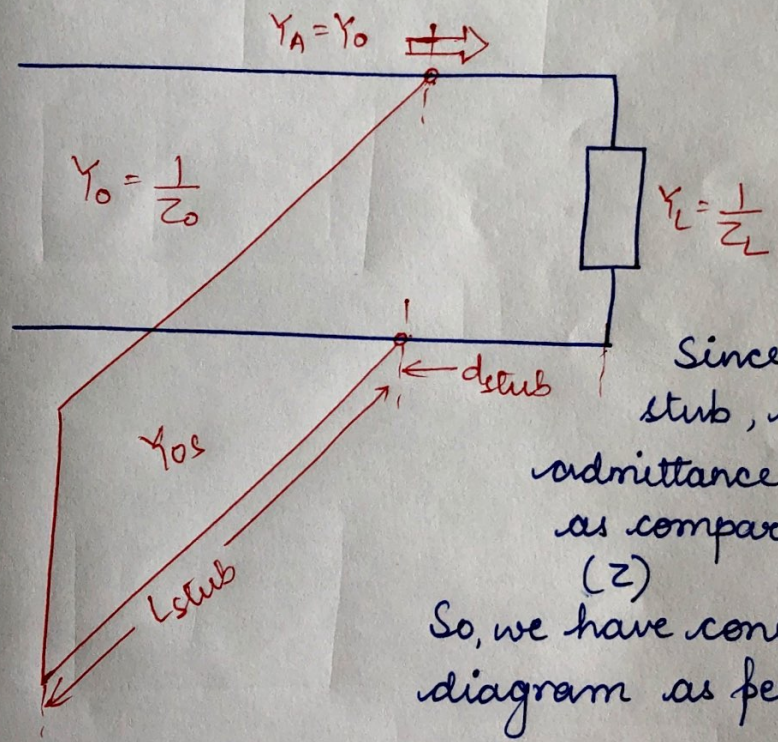 Y_A = Y_0
Y_0 = 1/Z_0
Y_L = 1/Z_L
d_stub
Y_OS
L_stub
Since
stub,
admittance
as compar
(Z)
So, we have con
diagram as pe